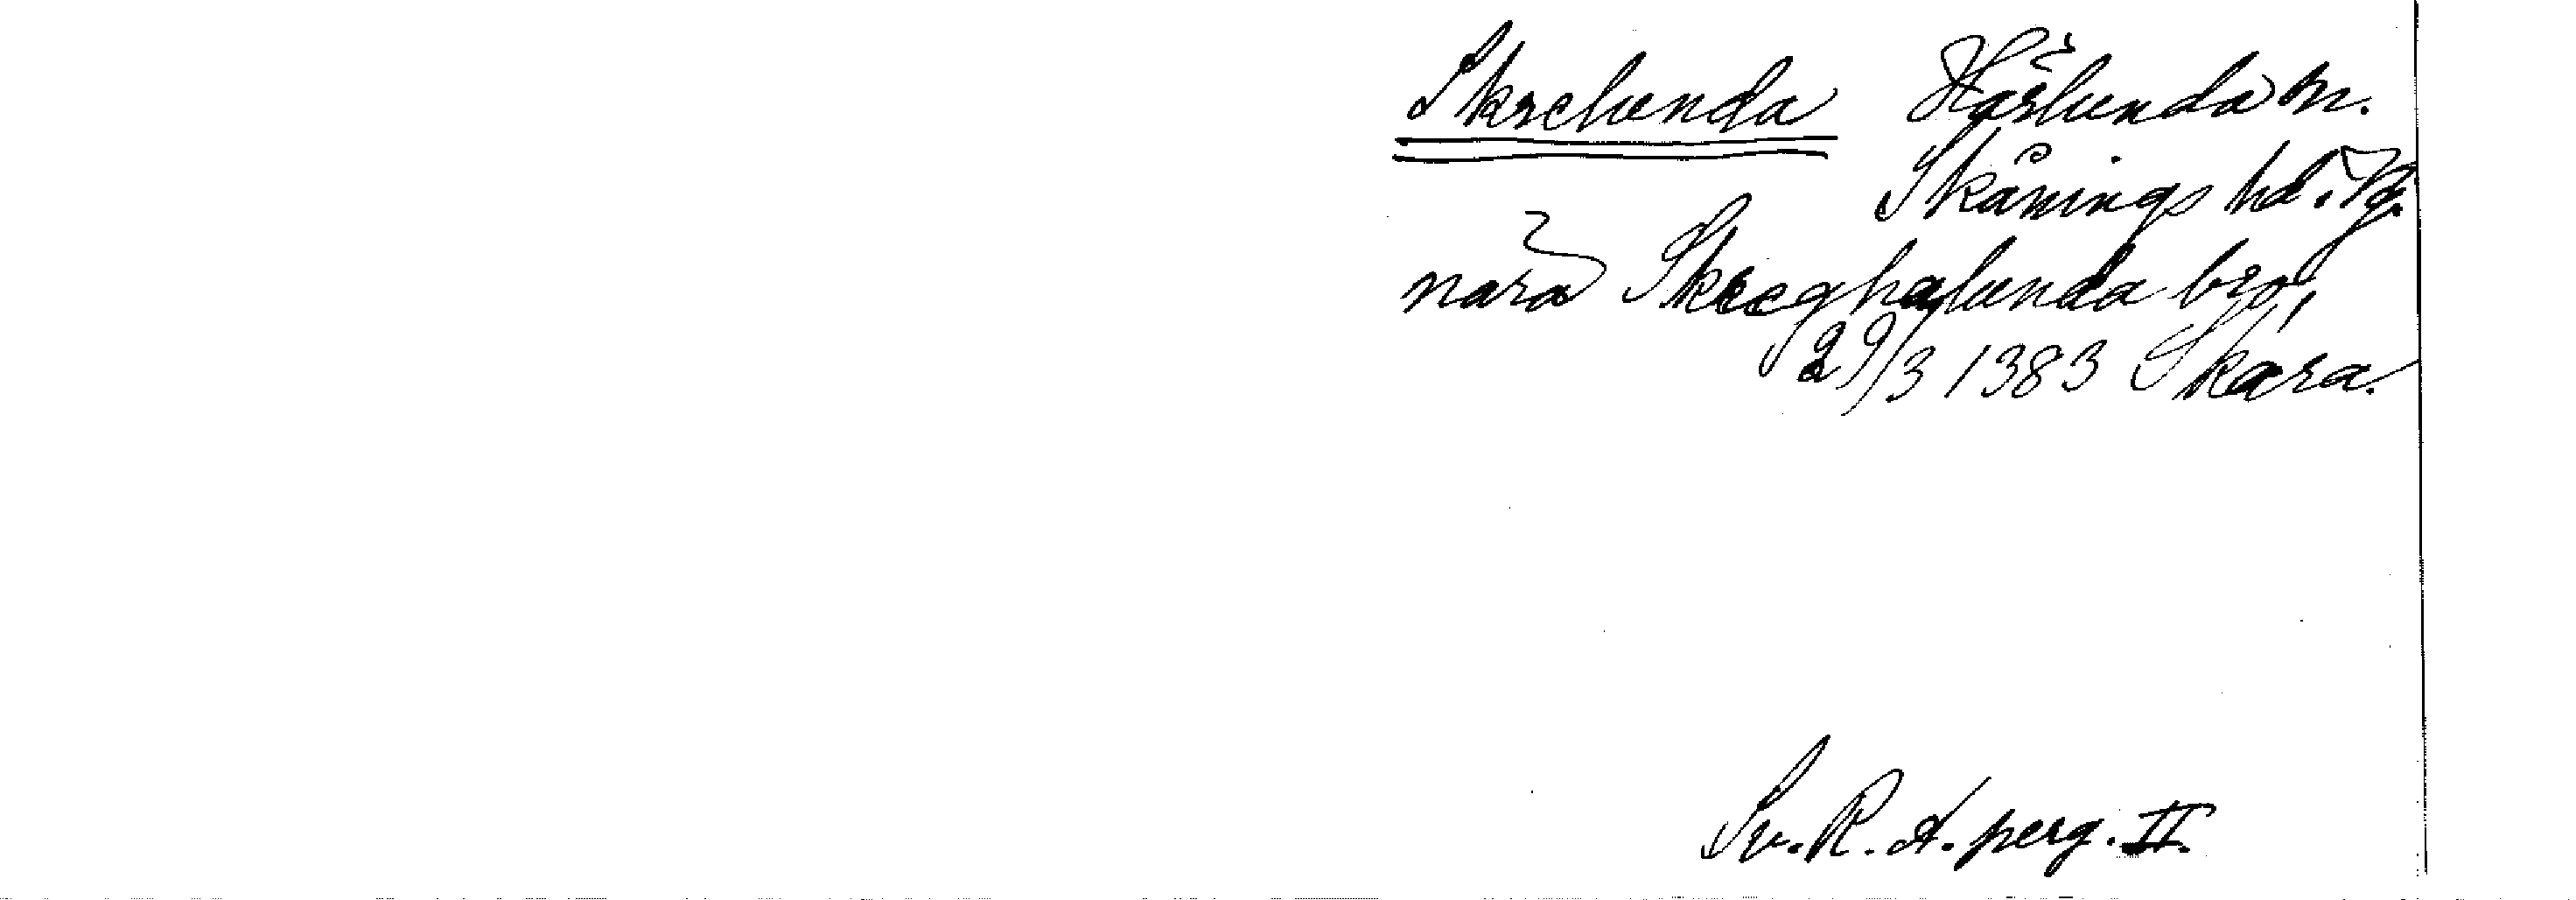 Skrelunda Härlunda sn.
Skånings hd. Vg.
nära Skreghalunda bro
29/3 1383 Skara.
Sv. R. A. perg. II.